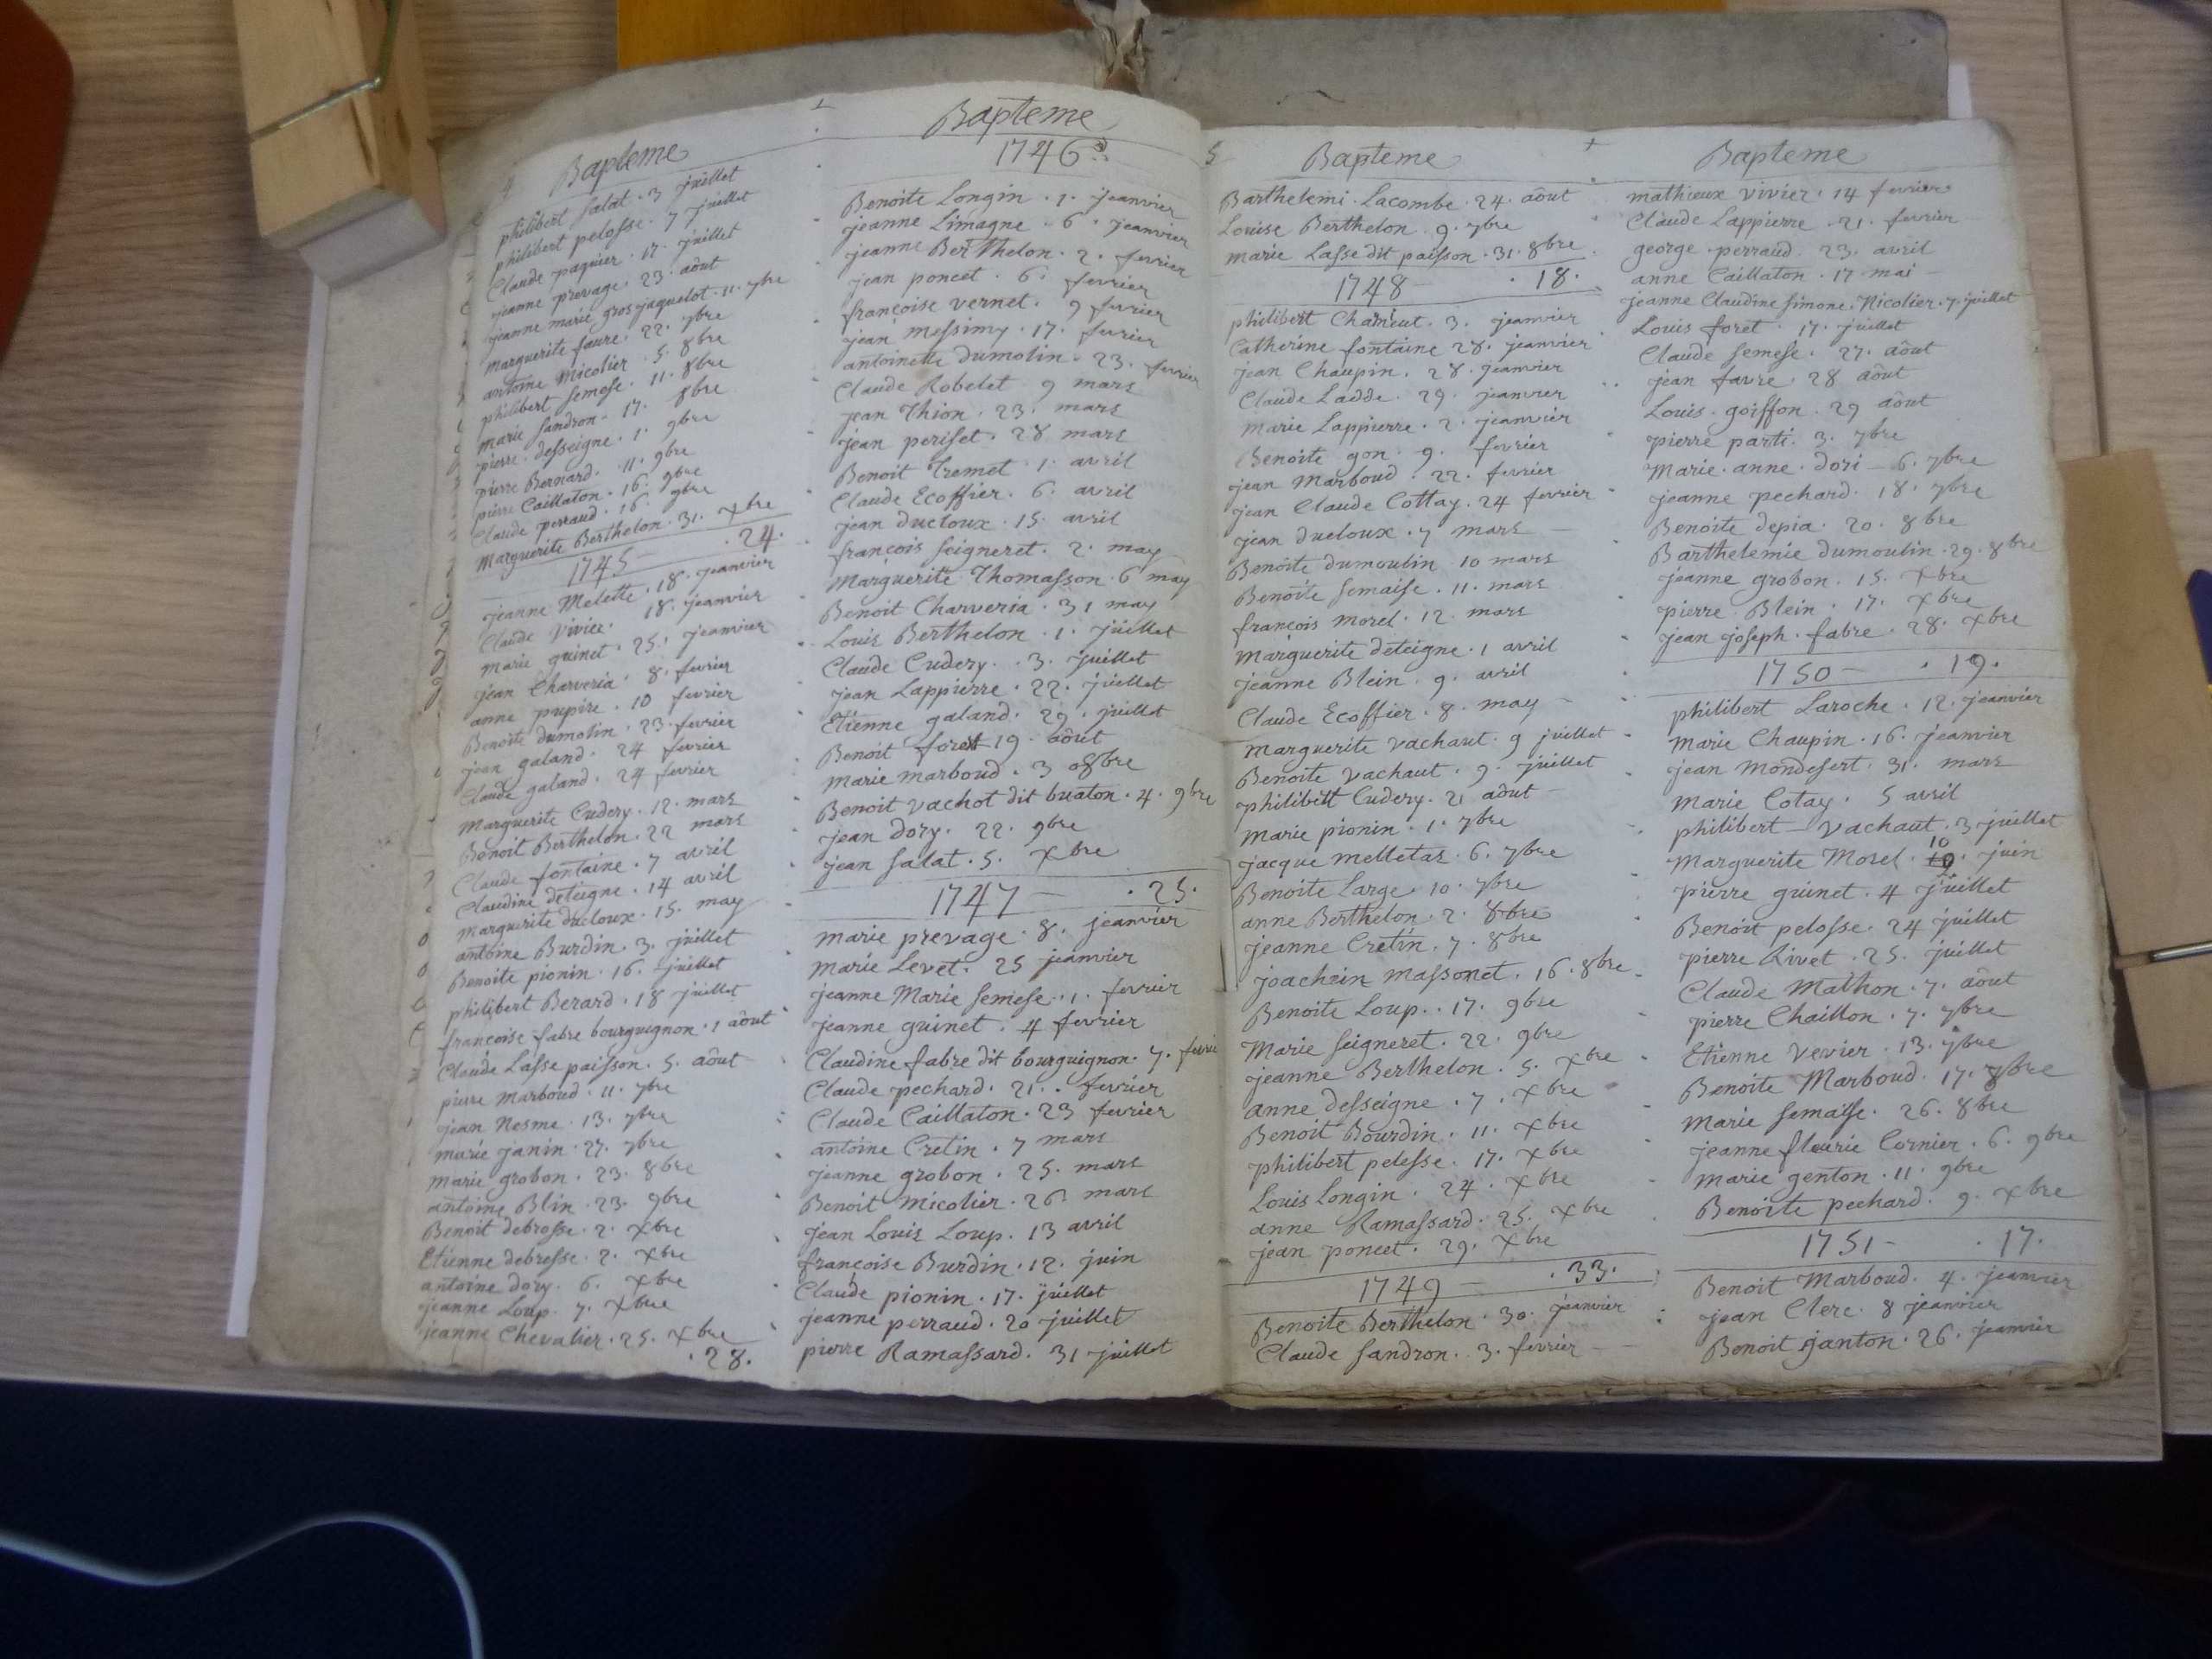 4 Bapteme
philibert salat . 3 juillet
philibert pelosse . 7 juillet
Claude paquier . 17 . juillet
jeanne prevage . 23 . aôut
jeanne marie gros jaquelot . 11 . 7bre
marguerite faure . 22 . 7bre
antoine Micolier . 5 . 8bre
philibert semese . 11 . 8bre
marie sandron . 17 . 8bre
pierre desseigne . 1 . 9bre
pierre Bernard . 11 . 9bre
pierre Caillaton . 16 . 9bre
Claude perraud . 16 . 9bre
Marguerite Berthelon . 31 . Xbre
1745 . 24 .
jeanne Melette . 18 . jeanvier
Claude Vivier . 18 . jeanvier
Marie guinet . 25 . jeanvier
jean Charveria . 8 . fevrier
anne pupire . 10 fevrier
Benoite dumolin . 23 . fevrier
jean galand . 24 fevrier
Claude galand . 24 fevrier
Marguerite Cudery . 12 . mars
Benoit Berthelon . 22 mars
Claude fontaine . 7 avril
Claudine deteigne . 14 avril
Marguerite ducloux . 15 . may
antoine Burdin . 3 . juillet
Benoite pionin . 16 . juillet
philibert Berard . 18 juillet
francoise fabre bourguignon . 1 aôut
Claude Lasse paisson . 5 . aôut
pierre Marboud . 11 . 7bre
jean Nesme . 13 . 7bre
marie janin . 27 . 7bre
marie grobon . 23 . 8bre
antoine Blin . 23 . 9bre
Benoit debrosse . 2 . Xbre
Etienne debrosse . 2 . Xbre
antoine dory . 6 . Xbre
jeanne Loup . 7 . Xbre
jeanne Chevalier . 25 . Xbre
. 28 .
Bapteme
1746
Benoite Longin . 1 . jeanvier
jeanne Limagne . 6 . jeanvier
jeanne Berthelon . 2 . fevrier
jean poncet . 6 . fevrier
françoise vernet . 9 fevrier
jean messimy . 17 . fevrier
antoinette dumolin . 23 . fevrier
Claude Robelet 9 mars
jean Thion . 23 . mars
jean periset . 28 mars
Benoit Tremet . 1 . avril
Claude Ecoffier . 6 . avril
jean ducloux . 15 . avril
françois seigneret . 2 . may
Marguerite Thomasson . 6 may
Benoit Charveria . 31 may
Louis Berthelon . 1 . juillet
Claude Cudery . 3 . juillet
jean Lappierre . 22 . juillet
Etienne galand . 29 . juillet
Benoit forest 19 . aôut
marie marboud . 3 8bre
Benoit vachot dit buaton . 4 . 9bre
jean dory . 22 . 9bre
jean salat . 5 . Xbre
1747 — . 25 .
marie prevage . 8 . jeanvier
marie Levet . 25 jeanvier
jeanne Marie semese . 1 . fevrier
jeanne guinet . 4 fevrier
Claudine fabre dit bourguignon . 7 . fevrie
Claude pechard . 21 . fevrier
Claude Caillaton . 23 fevrier
antoine Cretin . 7 mars
jeanne grobon . 25 . mars
Benoit Micolier . 26 mars
jean Louis Loup . 13 avril
françoise Burdin . 12 . juin
Claude pionin . 17 . juillet
jeanne perraud . 20 juillet
pierre Ramassard . 31 juillet
5 Bapteme
Barthelemi Lacombe . 24 . aôut
Louise Berthelon . 9 . 7bre
marie Lasse dit paisson . 31 . 8bre
1748 — . 18 .
philibert . 3 . jeanvier
Catherine fontaine 28 . jeanvier
jean Chaupin . 28 . jeanvier
Claude Ladde . 29 . jeanvier
marie Lappierre . 2 . jeanvier
Benoite gon . 9 . fevrier
jean Marboud . 22 . fevrier
jean Claude Cottay . 24 fevrier
jean ducloux . 7 mars
Benoite dumoulin 10 mars
Benoite semaise . 11 . mars
françois morel . 12 mars
Marguerite deteigne . 1 avril
jeanne Blein . 9 . avril
Claude Ecoffier . 8 . may
Marguerite vachaut . 9 juillet
Benoite vachaut . 9 . juillet
philibert Cudery . 21 aôut
Marie pionin . 1 . 7bre
jacque melletas . 6 . 7bre
Benoite Large . 10 . 7bre
anne Berthelon . 2 . 8bre
jeanne Cretin . 7 . 8bre
joachain massonet . 16 . 8bre
Benoite Loup . 17 . 9bre
Marie seigneret . 22 . 9bre
jeanne Berthelon . 5 . Xbre
anne desseigne . 7 . Xbre
Benoit Bourdin . 11 . Xbre
philibert pelosse . 17 . Xbre
Louis Longin . 24 . Xbre
anne Ramassard . 25 . Xbre
jean poncet . 29 . Xbre
1749 — . 33 .
Benoite Berthelon . 30 . jeanvier
Claude sandron . 3 . fevrier
Bapteme
mathieux vivier . 14 fevrier
Claude Lappierre . 21 . fevrier
george perraud . 23 . avril
anne Caillaton . 17 mai
jeanne Claudine simone Nicolier . 7 . juillet
Louis foret . 17 . juillet
Claude semese . 27 . aôut
jean favre . 28 aôut
Louis goiffon . 29 aôut
pierre parti . 3 . 7bre
Marie anne dori — 6 . 7bre
jeanne pechard . 18 . 7bre
Benoite depia . 20 . 8bre
Barthelemie dumoulin . 29 . 8bre
jeanne grobon . 15 . Xbre
pierre Blein . 17 . Xbre
jean joseph fabre . 28 . Xbre
1750 — . 19 .
philibert Laroche . 12 . jeanvier
Marie Chaupin . 16 . jeanvier
jean Mondesert . 31 . mars
Marie Cotay . 5 avril
philibert — vachaut . 3 juillet
Marguerite Morel . 10 juin
pierre guinet . 4 juillet
Benoit pelosse . 24 juillet
pierre Rivet . 25 . juillet
Claude Mathon . 7 . aôut
pierre Chaillon . 7 . 7bre
Etienne Vevier . 13 . 7bre
Benoite Marboud . 17 . 8bre
Marie semaise . 26 . 8bre
jeanne fleurie Cornier . 6 . 9bre
marie genton . 11 . 9bre
Benoite pechard . 9 . Xbre
1751 — . 17 .
Benoit Marboud . 4 . jeanvier
jean Clerc . 8 jeanvier
Benoit janton . 26 . jeanvier